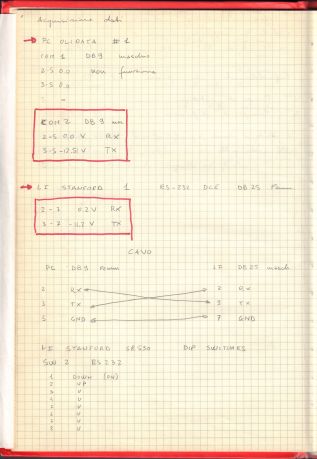 Acquisizione dati
PC OLIDATA #1
COM 1 DB9 maschio
2-5 0.0 non funziona
3-5 0.0
COM 2 DB 9
2-5 0.0 V RX
3-5 -12.51 V TX
LI STANFORD 1 RS-232 DCE DB 25 Femm
2-7 0.2 V RX
3-7 -11.7 V TX
CAVO
PC DB9 Femm LI DB25 masch
2 RX 2 RX
3 TX 3 TX
5 GND 7 GND
LI STANFORD SR530 DIP SWITCHES
SW 2 RS232
1 DOWN (ON)
2 UP
3 U
4 U
5 U
6 U
7 U
8 U